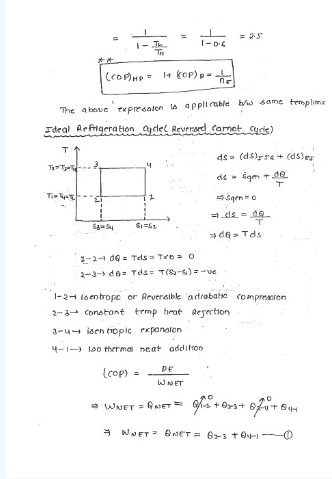 = 1 / (1 - TL/TH) = 1 / (1-0.6) = 2.5
**
(COP)HP = 1+ (COP)R = 1/ηE
The above expression is applicable b/w same templims
Ideal Refrigeration Cycle( Reversed Carnot Cycle)
T
3 4
T2=T3=TH
T1=T4=TL
2 1
S3=S4 S1=S2
ds = (ds)
ds = Sgen + dQ/T
⇒ Sgen = 0
⇒ ds = dQ/T
⇒ dQ = Tds
1-2→ dQ = Tds = T×0 = 0
2-3→ dQ = Tds = T(S2-S1) = -ve
1-2→ isentropic or Reversible adiabatic compression
2-3→ constant temp heat Rejection
3-4→ isentropic expansion
4-1→ Isothermal heat addition
(COP) = DE / WNET
⇒ WNET = QNET = Q1-2 + Q2-3 + Q3-4 + Q4-1
⇒ WNET = QNET = Q2-3 + Q4-1 — ①